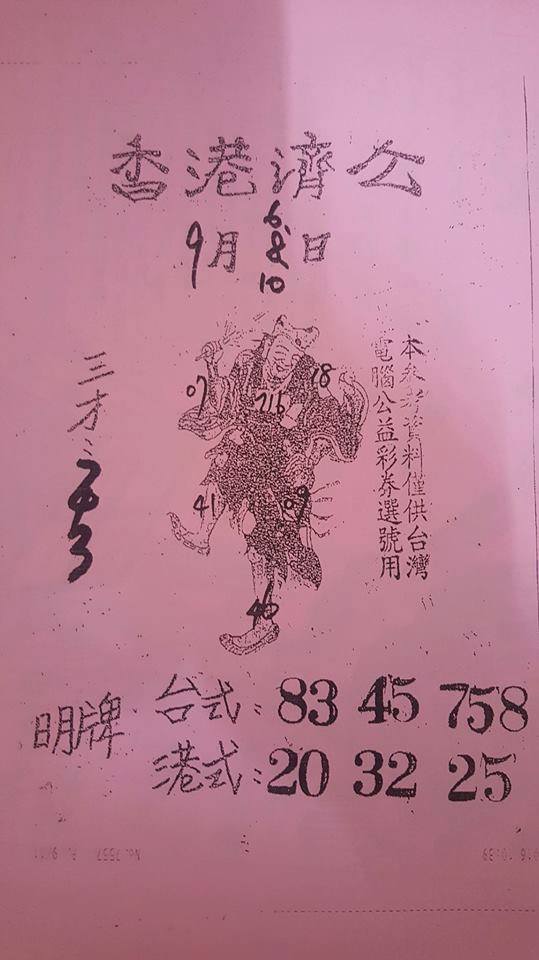 香港濟公
9月6.8.10日
07
18
716
41
09
46
三才:
本參考資料僅供台灣
電腦公益彩券選號用
明牌
台式: 83 45 758
港式: 20 32 25
No.7557 P. 9/11
016 10:39